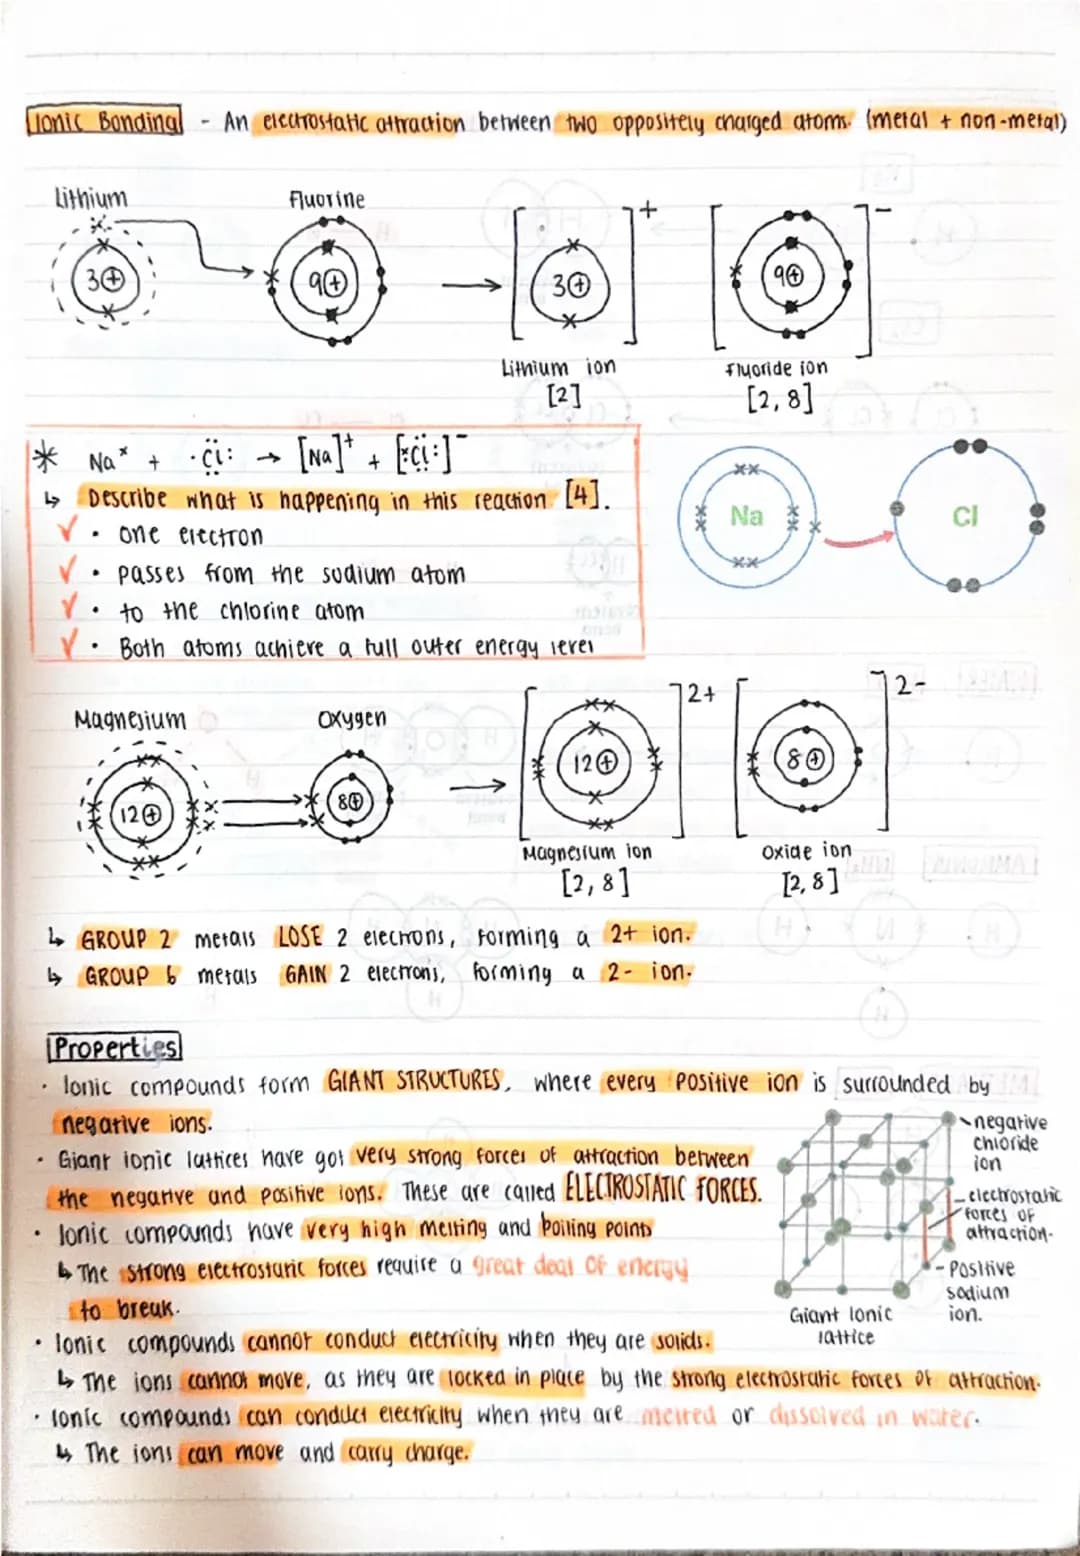 Ionic Bonding - An electrostatic attraction between two oppositely charged atoms. (metal + non-metal)
Lithium
Fluorine
3+
9+
→
[3+]+
[9+]-
Lithium ion
[2]
Fluoride ion
[2, 8]
* Naˣ + ·Cl: → [Na]+ + [ˣCl:]-
↳ Describe what is happening in this reaction [4].
✓ • one electron
✓ • passes from the sodium atom
✓ • to the chlorine atom
✓ • Both atoms achieve a full outer energy level
Na
Cl
Magnesium
Oxygen
12+
8+
→
[12+]2+
[8+]2-
Magnesium ion
[2, 8]
Oxide ion
[2, 8]
↳ GROUP 2 metals LOSE 2 electrons, forming a 2+ ion.
↳ GROUP 6 metals GAIN 2 electrons, forming a 2- ion.
Properties
• Ionic compounds form GIANT STRUCTURES, where every positive ion is surrounded by
negative ions.
• Giant ionic lattices have got very strong forces of attraction between
the negative and positive ions. These are called ELECTROSTATIC FORCES.
• Ionic compounds have very high melting and boiling points
↳ The strong electrostatic forces require a great deal of energy
to break.
negative
chloride
ion
electrostatic
forces of
attraction.
Positive
sodium
ion.
Giant Ionic
lattice
• Ionic compounds cannot conduct electricity when they are solids.
↳ The ions cannot move, as they are locked in place by the strong electrostatic forces of attraction.
• Ionic compounds can conduct electricity when they are melted or dissolved in water.
↳ The ions can move and carry charge.